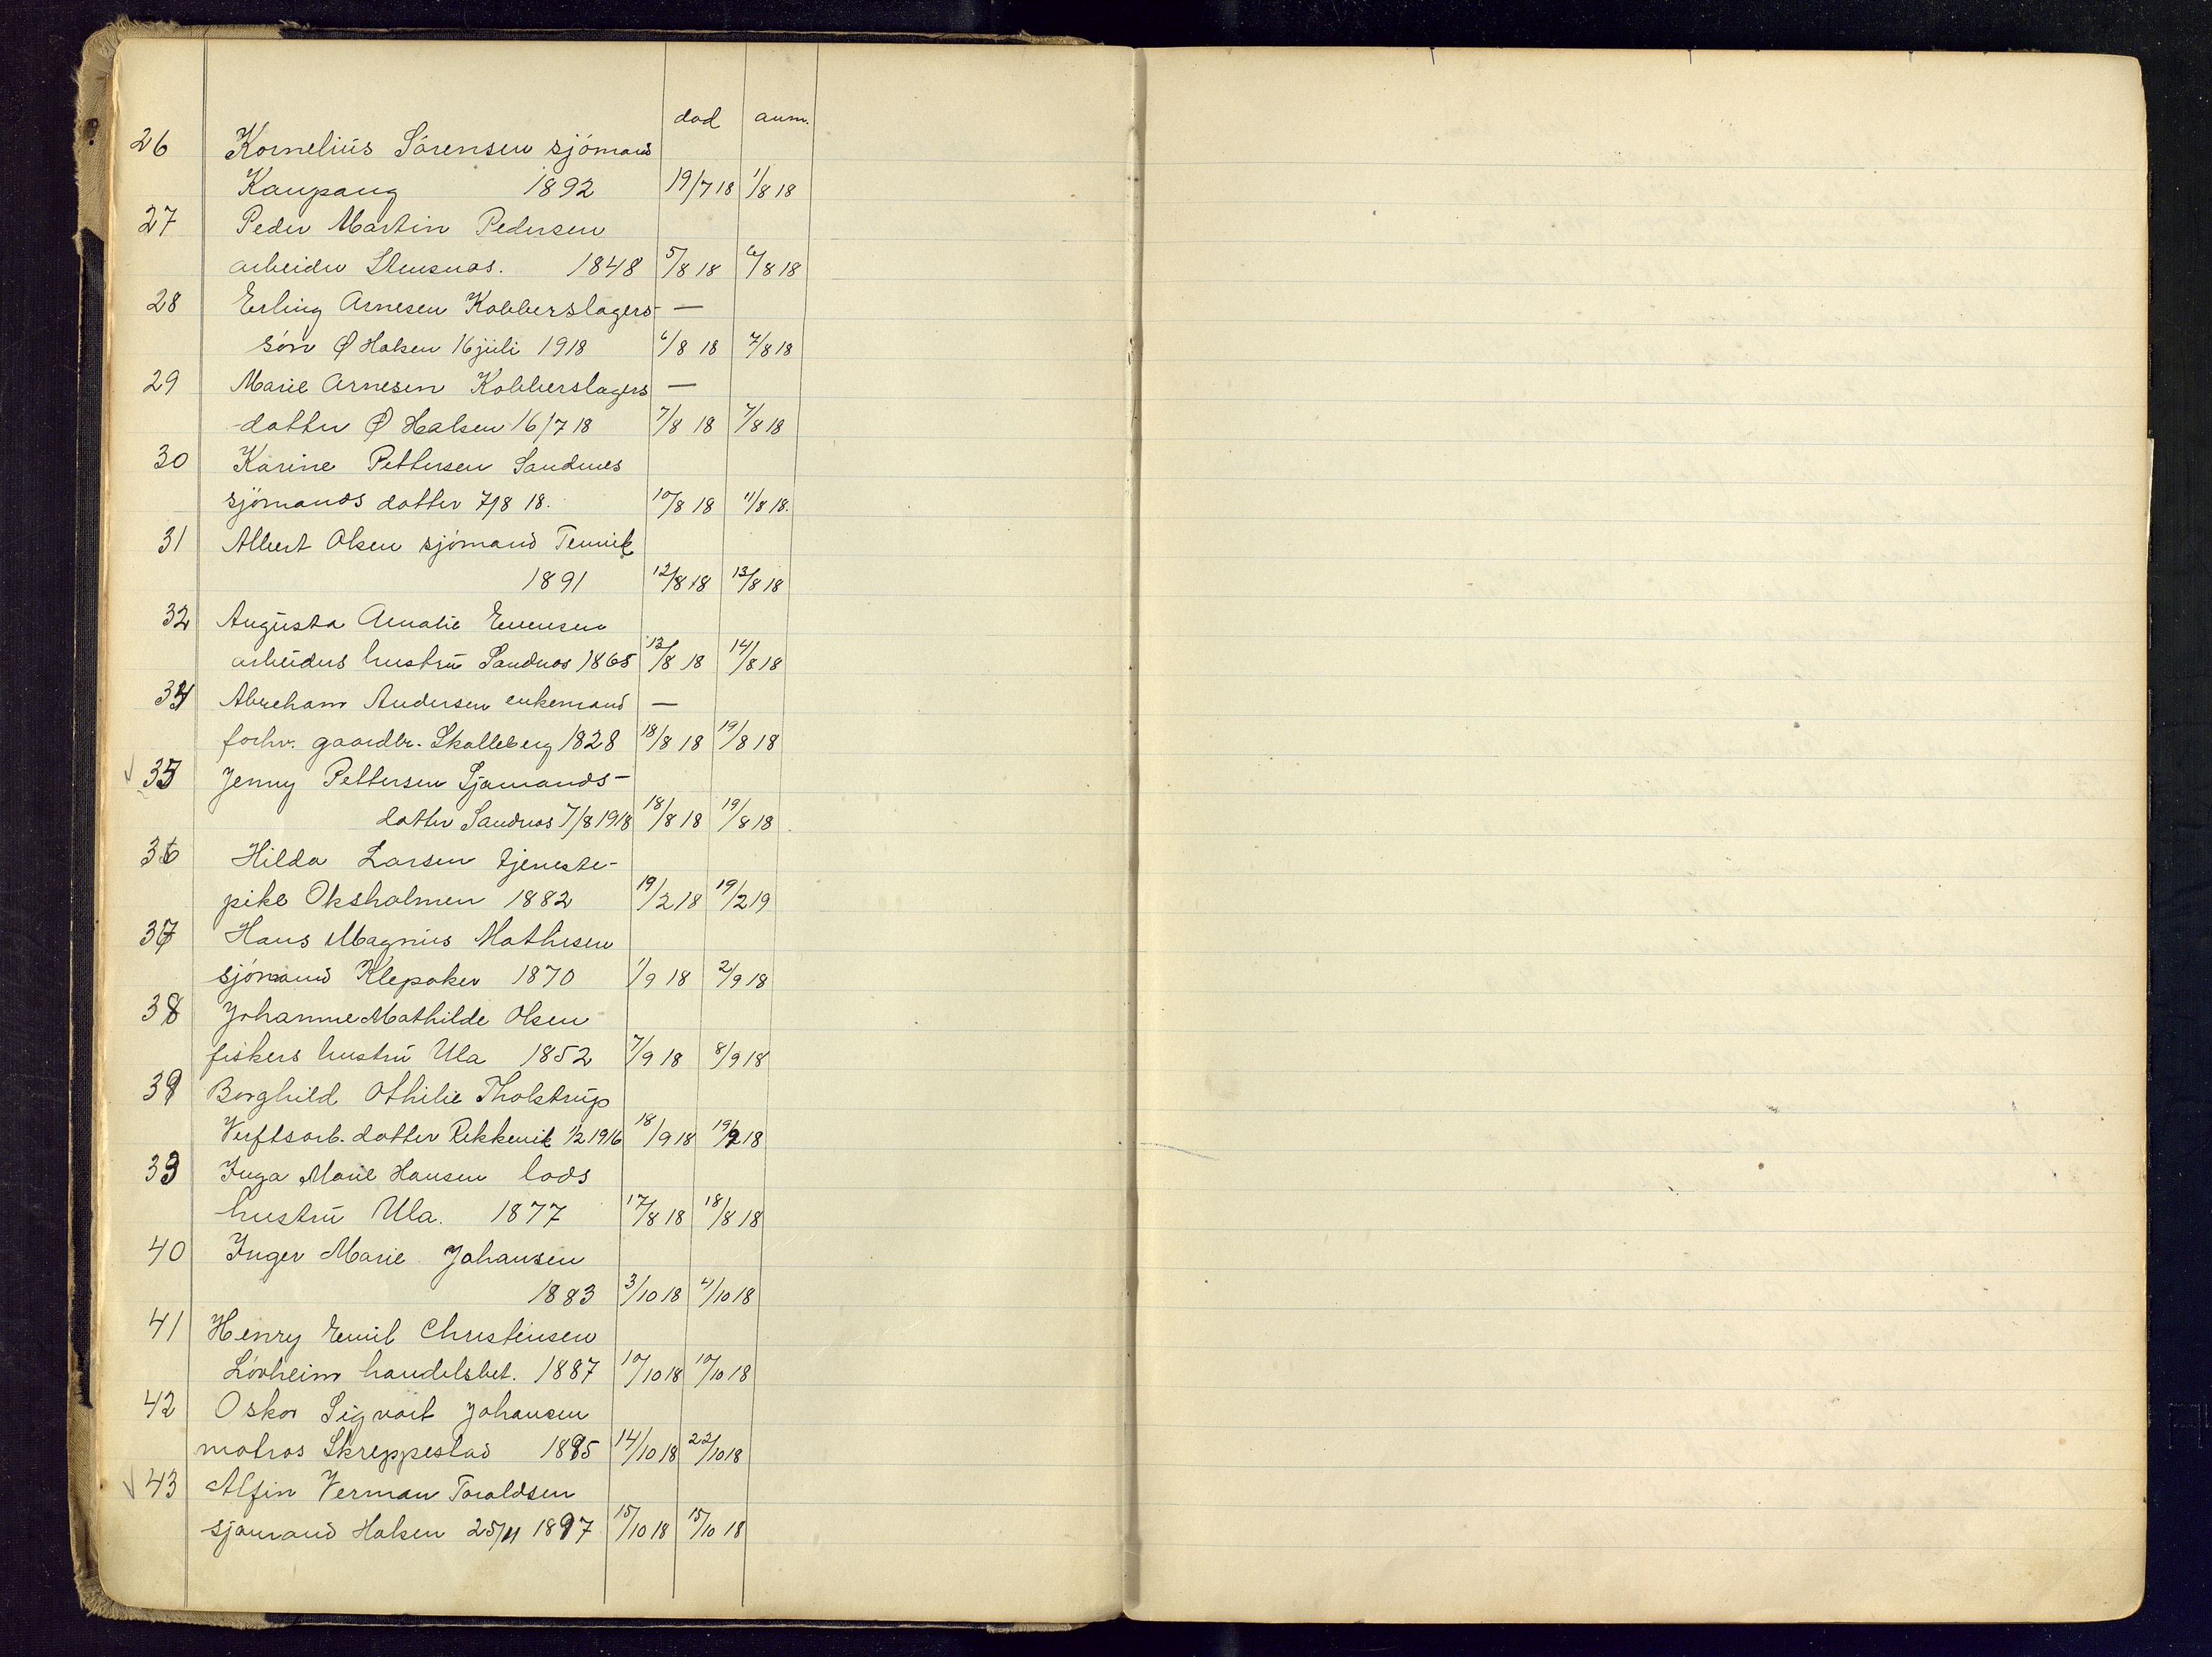 død anm.
26 Kornelius Sörensen sjömand
Kaupang 1892 19/7 18 1/8 18
27 Peder Martin Pedersen
arbeider 1848 5/8 18 6/8 18
28 Erling Arnesen Kobberslagers- —
sön Ø Halsen 16 juli 1918 6/8 18 7/8 18
29 Marie Arnesen Kobberslagers —
-datter Ø Halsen 16/7 18 7/8 18 7/8 18
30 Karine Pettersen Sandnes
sjömands datter 7/8 18. 10/8 18 11/8 18.
31 Albert Olsen sjömand Temvik
1891 12/8 18 13/8 18
32 Augusta Amalie Evensen
arbeiders hustru Sandnes 1865 13/8 18 14/8 18
34 Abraham Andersen enkemand —
forhv. gaardbr. Skalleberg 1828 18/8 18 19/8 18
35 Jenny Pettersen Sjømands-
datter Sandnes 7/8 1918 18/8 18 19/8 18
36 Hilda Larsen tjeneste-
pike Oksholmen 1882 19/2 18 19/2 19
37 Hans Magnus Mathisen
sjömand Klepaker 1870 1/9 18 2/9 18
38 Johanne Mathilde Olsen
fiskers hustru Ula 1852 7/9 18 8/9 18
39 Borghild Othilie Tholstrup
Verftsarb. datter Rekkevik 1/2 1916 18/9 18 19/9 18
33 Inga Marie Hansen lods
hustru Ula. 1877 17/8 18 18/8 18
40 Inger Marie Johansen
1883 3/10 18 4/10 18
41 Henry Emil Christensen
Lövheim handelsbet. 1887 10/10 18 10/10 18
42 Oskar Sigvart Johansen
matros Skreppestad 1895 14/10 18 22/10 18
43 Alfin Verman Toraldsen
sjømand Halsen 25/11 1897 15/10 18 15/10 18